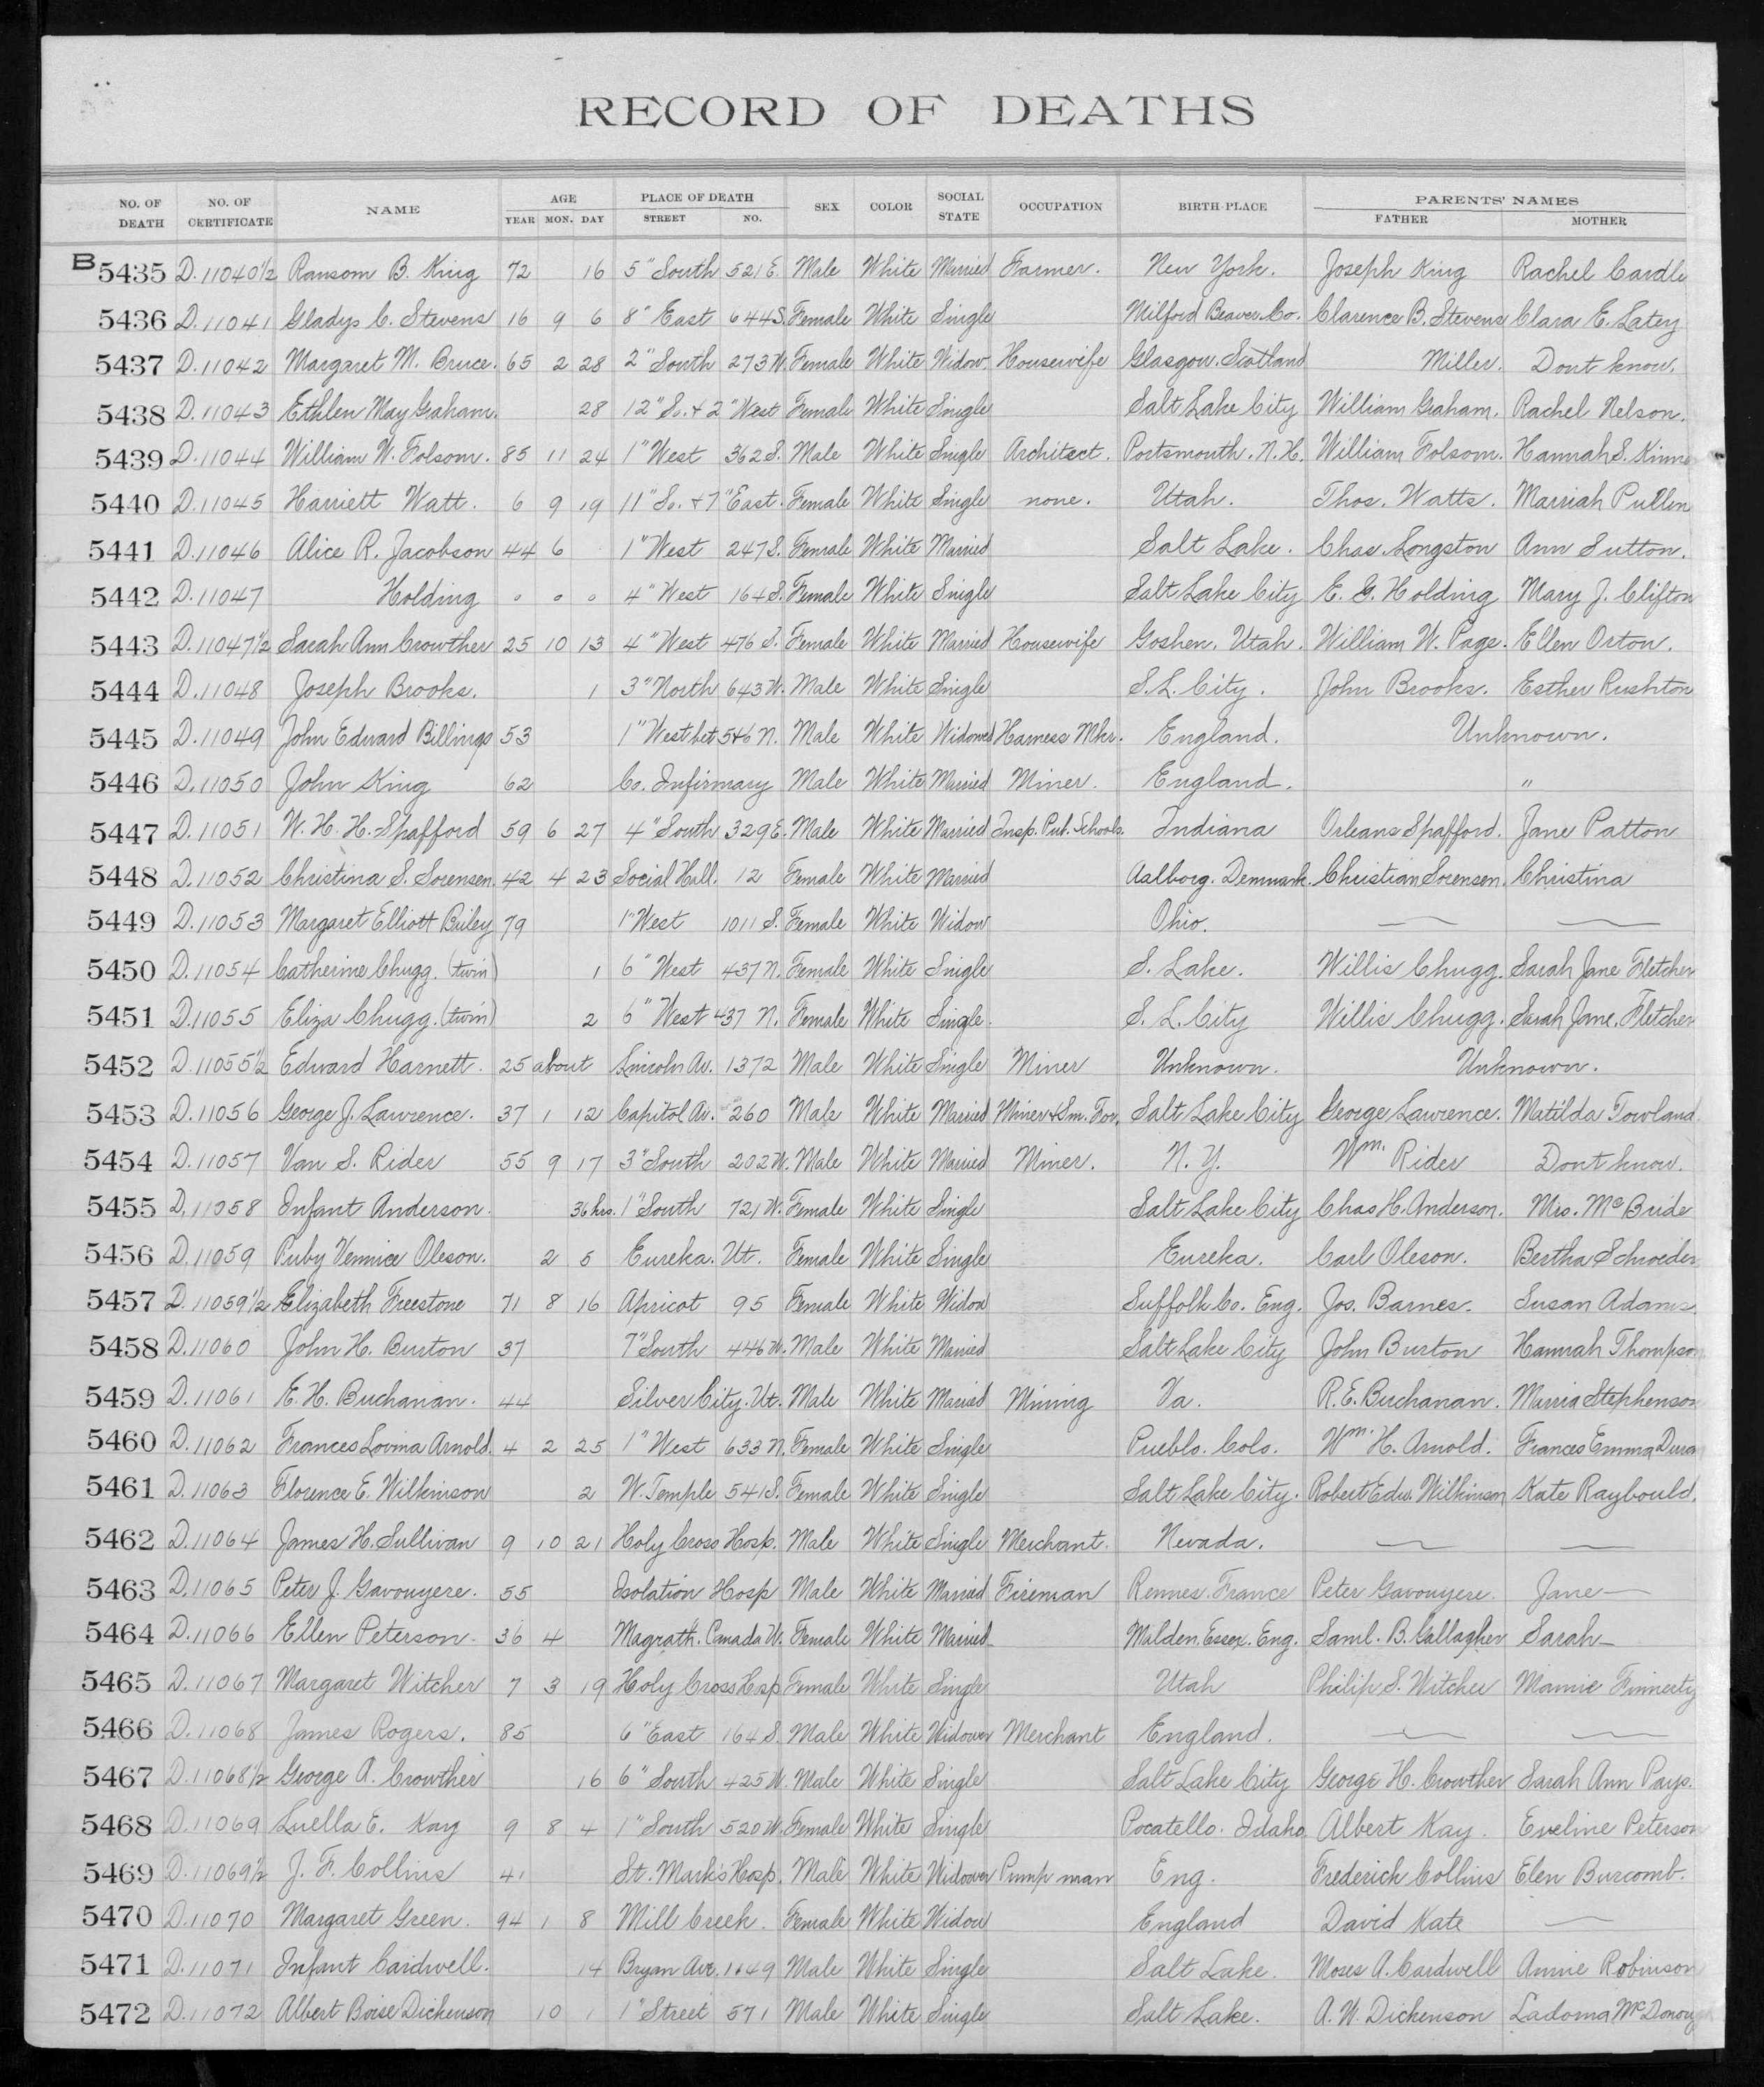 RECORD OF DEATHS
NO. OF DEATH NO. OF CERTIFICATE NAME AGE YEAR MON. DAY PLACE OF DEATH STREET NO. SEX COLOR SOCIAL STATE OCCUPATION BIRTH-PLACE PARENTS' NAMES FATHER MOTHER
B 5435 D. 11040 1/2 Ransom B. King 72 16 5" South 521 E. Male White Married Farmer. New York. Joseph King Rachel Cardle
5436 D. 11041 Gladys C. Stevens 16 9 6 8" East 644 S. Female White Single Milford Beaver Co. Clarence B. Stevens Clara E. Latey
5437 D. 11042 Margaret M. Bruce. 65 2 28 2" South 273 W. Female White Widow. Housewife Glasgow. Scotland Miller. Dont know.
5438 D. 11043 Ethlen May Graham. 28 12" So. + 2" West Female White Single Salt Lake City William Graham. Rachel Nelson.
5439 D. 11044 William W. Folsom. 85 11 24 1" West 362 S. Male White Single Architect. Portsmouth. N.H. William Folsom. Hannah S.
5440 D. 11045 Harriett Watt. 6 9 19 11" So. + 7" East. Female White Single none. Utah. Thos. Watts. Marriah Pullen
5441 D. 11046 Alice R. Jacobson 44 6 1" West 247 S. Female White Married Salt Lake. Chas. Longston Ann Sutton.
5442 D. 11047 Holding 0 0 0 4" West 164 S. Female White Single Salt Lake City E. G. Holding Mary J. Clifton
5443 D. 11047 1/2 Sarah Ann Crowther 25 10 13 4" West 476 S. Female White Married Housewife Goshen. Utah. William W. Page. Ellen Orton.
5444 D. 11048 Joseph Brooks. 1 3" North 643 W. Male White Single S.L. City. John Brooks. Esther Rushton
5445 D. 11049 John Edward Billings 53 1" West bet 5+6 N. Male White Widowed Harness Mkr. England. Unknown.
5446 D. 11050 John King 62 Co. Infirmary Male White Married Miner. England. "
5447 D. 11051 W. H. H. Spafford 59 6 27 4" South 329 E. Male White Married Insp. Pub. Schools. Indiana Orleans Spafford. Jane Patton
5448 D. 11052 Christina S. Sorensen. 42 4 23 Social Hall. 12 Female White Married Aalborg. Denmark. Christian Sorensen. Christina
5449 D. 11053 Margaret Elliott 79 1" West 1011 S. Female White Widow Ohio. — —
5450 D. 11054 Catherine Chugg. (twin) 1 6" West 437 N. Female White Single S. Lake. Willis Chugg. Sarah Jane Fletcher
5451 D. 11055 Eliza Chugg. (twin) 2 6" West 437 N. Female White Single. S. L. City Willis Chugg. Sarah Jane. Fletcher
5452 D. 11055 1/2 Edward Harnett. 25 about Lincoln Av. 1372 Male White Single Miner Unknown. Unknown.
5453 D. 11056 George J. Lawrence. 37 1 12 Capitol Av. 260 Male White Married Miner + Sm. For. Salt Lake City George Lawrence. Matilda Towland
5454 D. 11057 Van S. Rider 55 9 17 3" South 202 W. Male White Married Miner. N. Y. Wm. Rider Dont know.
5455 D. 11058 Infant Anderson. 36 hrs. 1" South 721 W. Female White Single Salt Lake City Chas H. Anderson. Mrs. McBride
5456 D. 11059 Ruby Vennice Oleson. 2 5 Eureka. Ut. Female White Single Eureka. Carl Oleson. Bertha Schroeder
5457 D. 11059 1/2 Elizabeth Freestone 71 8 16 Apricot 95 Female White Widow Suffolk Co. Eng. Jos. Barnes. Susan Adams
5458 D. 11060 John H. Burton 37 7" South 446 W. Male White Married Salt Lake City John Burton Hannah Thompson
5459 D. 11061 E. H. Buchanan. 44 Silver City. Ut. Male White Married Mining Va. R. E. Buchanan. Marria Stephenson
5460 D. 11062 Frances Lovina Arnold. 4 2 25 1" West 633 N. Female White Single Pueblo. Colo. Wm. H. Arnold. Frances Emma
5461 D. 11063 Florence E. Wilkinson 2 W. Temple 541 S. Female White Single Salt Lake City. Robert Edw. Wilkinson Kate Raybould.
5462 D. 11064 James H. Sullivan 9 10 21 Holy Cross Hosp. Male White Single Merchant. Nevada. — —
5463 D. 11065 Peter J. Gavouyere. 55 Isolation Hosp Male White Married Fireman Rennes. France Peter Gavouyere. Jane —
5464 D. 11066 Ellen Peterson. 36 4 Magrath. Canada W. Female White Married Malden. Essex. Eng. Saml. B. Gallagher Sarah —
5465 D. 11067 Margaret Witcher 7 3 19 Holy Cross Hosp Female White Single Utah Philip S. Witcher Mamie Finnerty
5466 D. 11068 James Rogers. 85 6" East 164 S. Male White Widower Merchant England. — —
5467 D. 11068 1/2 George A. Crowther 16 6" South 425 W. Male White Single Salt Lake City George H. Crowther Sarah Ann Page.
5468 D. 11069 Luella E. Kay 9 8 4 1" South 520 W. Female White Single Pocatello. Idaho Albert Kay. Eveline Peterson
5469 D. 11069 1/2 J. F. Collins 41 St. Mark's Hosp. Male White Widower Pump man Eng. Frederick Collins Elen Burcomb.
5470 D. 11070 Margaret Green. 94 1 8 Mill Creek. Female White Widow England David Kate —
5471 D. 11071 Infant Cardwell. 14 Bryan Ave. 1149 Male White Single Salt Lake. Moses A. Cardwell Annie Robinson
5472 D. 11072 Albert Boise Dickenson 10 1 1" Street 571 Male White Single Salt Lake. A. W. Dickenson Ladoma